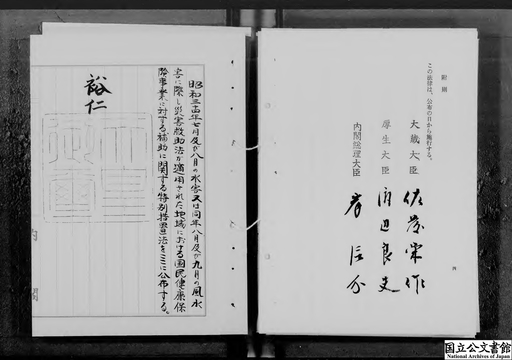 附則
この法律は、公布の日から施行する。
大蔵大臣 佐藤栄作
厚生大臣 渡辺良夫
内閣総理大臣 岸信介
六
昭和三十四年七月及び八月の水害又は同年八月及び九月の風水
害に際し災害救助法が適用された地域における国民健康保
険事業に対する補助に関する特別措置法をここに公布する。
裕仁
天皇
御璽
内閣
国立公文書館
National Archives of Japan